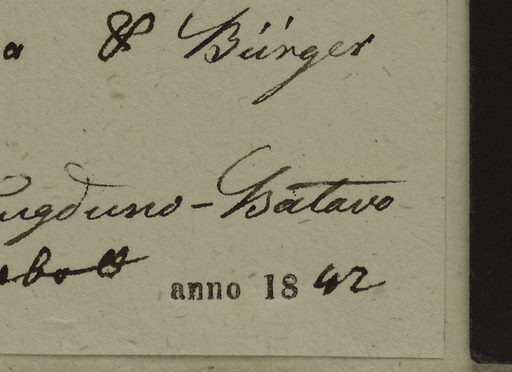 a & Bürger
Lugduno-Batavo
anno 1842